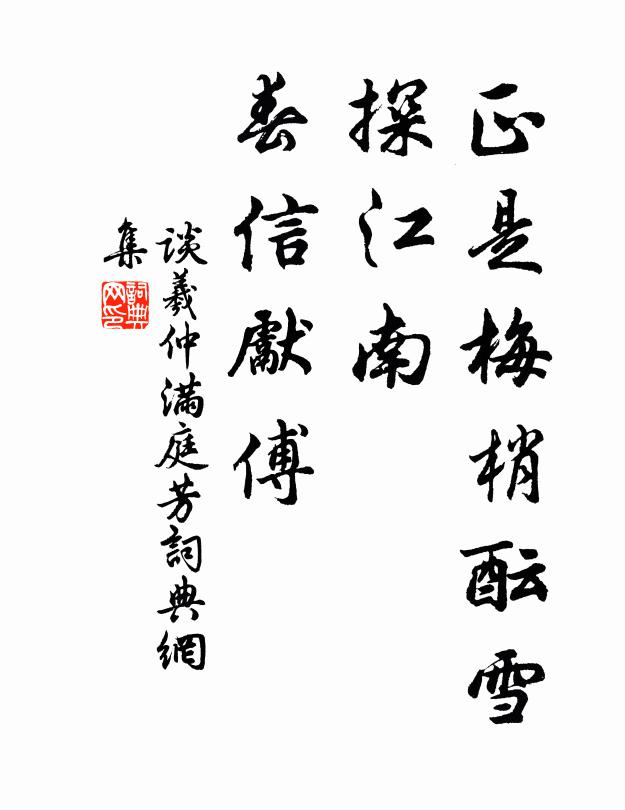 正是梅梢酝雪
探江南
春信献傅
谈羲仲满庭芳詞典網
集
詞典网印